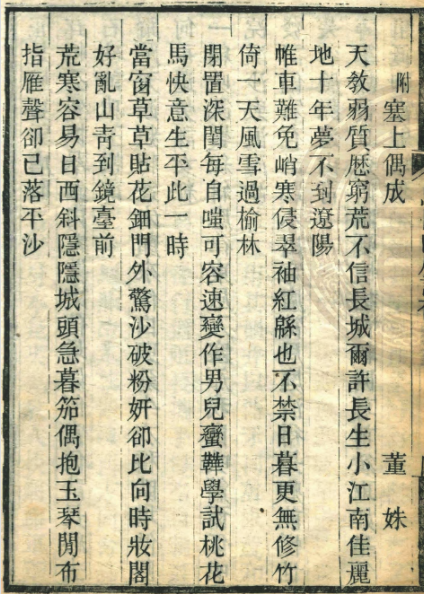 附塞上偶成　董姝
天教弱質歷窮荒不信長城爾許長生小江南佳麗
地十年夢不到遼陽
帷車難免峭寒侵翠袖紅緜也不禁日暮更無修竹
倚一天風雪過榆林
閉置深閨每自嗤可容速變作男兒蠻鞾學試桃花
馬快意生平此一時
當窗草草貼花鈿門外驚沙破粉妍卻比向時妝閣
好亂山青到鏡臺前
荒寒容易日西斜隱隱城頭急暮笳偶抱玉琴閒布
指雁聲卻已落平沙